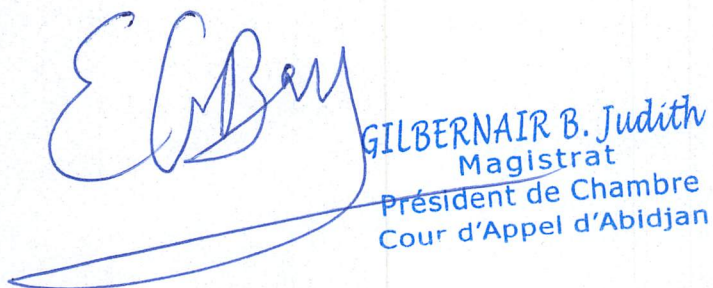 GILBERNAIR B. Judith
Magistrat
Président de Chambre
Cour d'Appel d'Abidjan